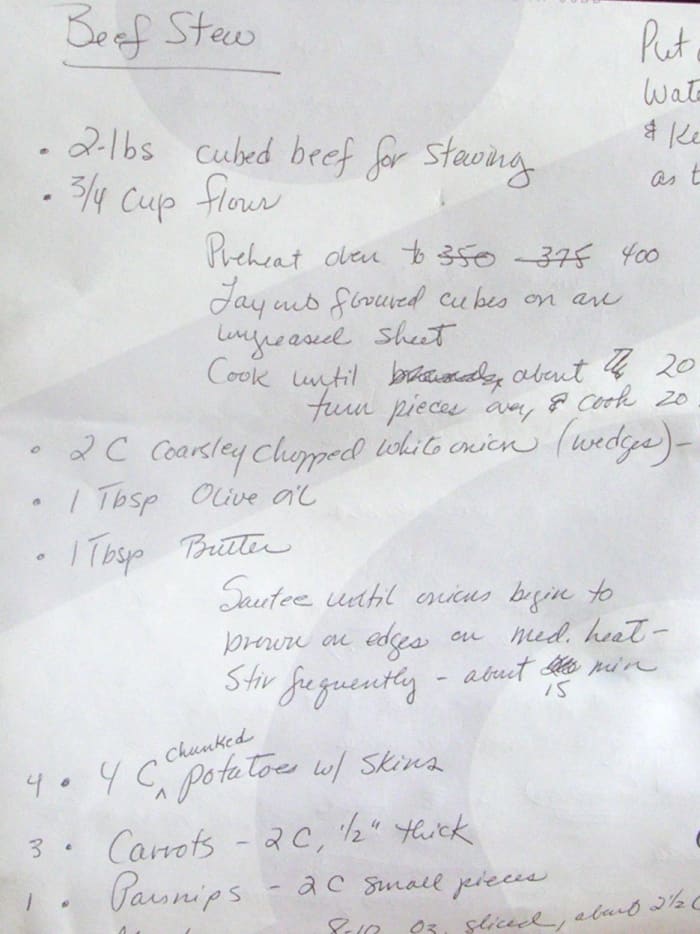 Beef Stew
• 2-lbs cubed beef for stewing
• 3/4 cup flour
Preheat oven to 350 375 400
Lay out floured cubes on an
ungreased sheet
Cook until about 20
turn pieces over, & cook 20
• 2 C Coarsley chopped white onion (wedges) –
• 1 Tbsp Olive oil
• 1 Tbsp Butter
Sautee until onions begin to
brown on edges on med. heat –
Stir frequently – about 15 min
4 • 4 C chunked potatoes w/ skins
3 • Carrots – 2 C, 1/2" thick
1 • Parsnips – 2 C small pieces
8-10 oz. sliced, about 2 1/2 C
Put
Wate
& Ke
as t